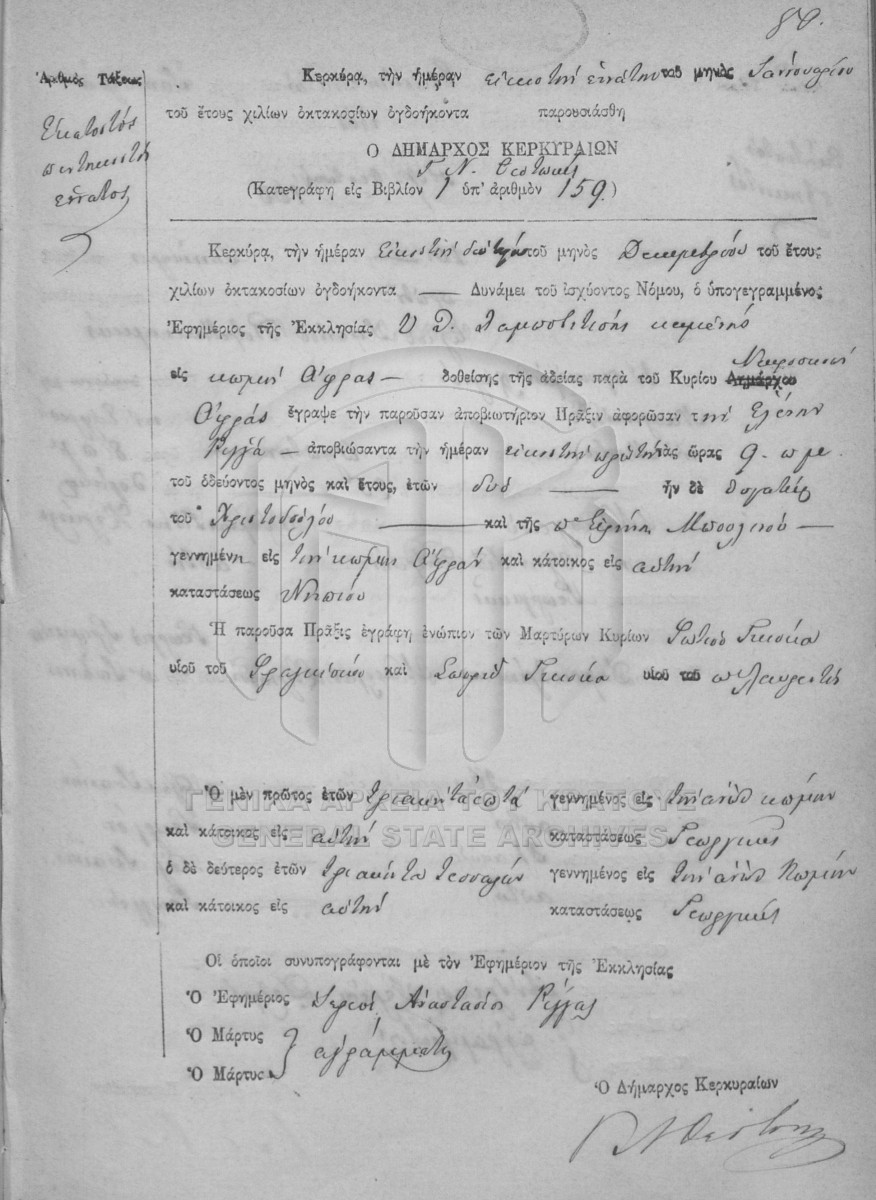 80.
Ἀριθμὸς Τάξεως
Εἑκατοστὸς
πεντηκοστὸς
ἔννατος
Κερκύρα, τὴν ἡμέραν εἰκοστὴν ἐννάτην τοῦ μηνὸς Ἰαννουαρίου
τοῦ ἔτους χιλίων ὀκτακοσίων ὀγδοήκοντα παρουσιάσθη
Ο ΔΗΜΑΡΧΟΣ ΚΕΡΚΥΡΑΙΩΝ
Γ. Ν. Θεοτόκης
(Κατεγράφη εἰς Βιβλίον 1 ὑπ' ἀριθμὸν 159)
Κερκύρα, τὴν ἡμέραν Εἰκοστὴν τοῦ μηνὸς Δεκεμβρίου τοῦ ἔτους
χιλίων ὀκτακοσίων ὀγδοήκοντα — Δυνάμει τοῦ ἰσχύοντος Νόμου, ὁ ὑπογεγραμμένος
Ἐφημέριος τῆς Ἐκκλησίας Υ. Θ.
εἰς κωμην Αφρας — δοθείσης τῆς ἀδείας παρὰ τοῦ Κυρίου Δημάρχου
Αφρᾶς ἔγραψε τὴν παροῦσαν ἀποβιωτήριον Πρᾶξιν ἀφορῶσαν τὴν Ελένην
Ρίγγα — ἀποβιώσαντα τὴν ἡμέραν εἰκοστὴν πρώτην τὰς ὥρας 9. π μ.
τοῦ ὁδεύοντος μηνὸς καὶ ἔτους, ἐτῶν δυὸ — ἦν δὲ θυγατὴρ
τοῦ Χριστοδούλου — καὶ τῆς π Εἰρήνη Μπουλιοῦ —
γεννημένη εἰς τὴν κωμην Αφραν καὶ κάτοικος εἰς αὐτὴν
καταστάσεως Νηπίου
Ἡ παροῦσα Πρᾶξις ἐγράφη ἐνώπιον τῶν Μαρτύρων Κυρίων Φωτίου Γκίσκα
υἱοῦ τοῦ Φραγκίσκου καὶ Σπυρίδ Γκίσκα υἱοῦ τοῦ π Λαυρεντη
Ὁ μὲν πρῶτος ἐτῶν τριακηντα ἑπτά γεννημένος εἰς τὴν ἀνωθ κωμην
καὶ κάτοικος εἰς αὐτὴν καταστάσεως Γεωργικῆς
ὁ δὲ δεύτερος ἐτῶν τριακηντα τεσσάρων γεννημένος εἰς τὴν ἀνωθ κωμην
καὶ κάτοικος εἰς αὐτὴν καταστάσεως Γεωργικῆς
Οἱ ὁποῖοι συνυπογράφονται μὲ τὸν Ἐφημέριον τῆς Ἐκκλησίας
Ὁ Ἐφημέριος Ιερεύς Αναστάσιος Ρίγγας
Ὁ Μάρτυς
ἀγράμματοι
Ὁ Μάρτυς
Ὁ Δήμαρχος Κερκυραίων
Γ Ν Θεοτόκης
ΓΕΝΙΚΑ ΑΡΧΕΙΑ ΤΟΥ ΚΡΑΤΟΥΣ
GENERAL STATE ARCHIVES